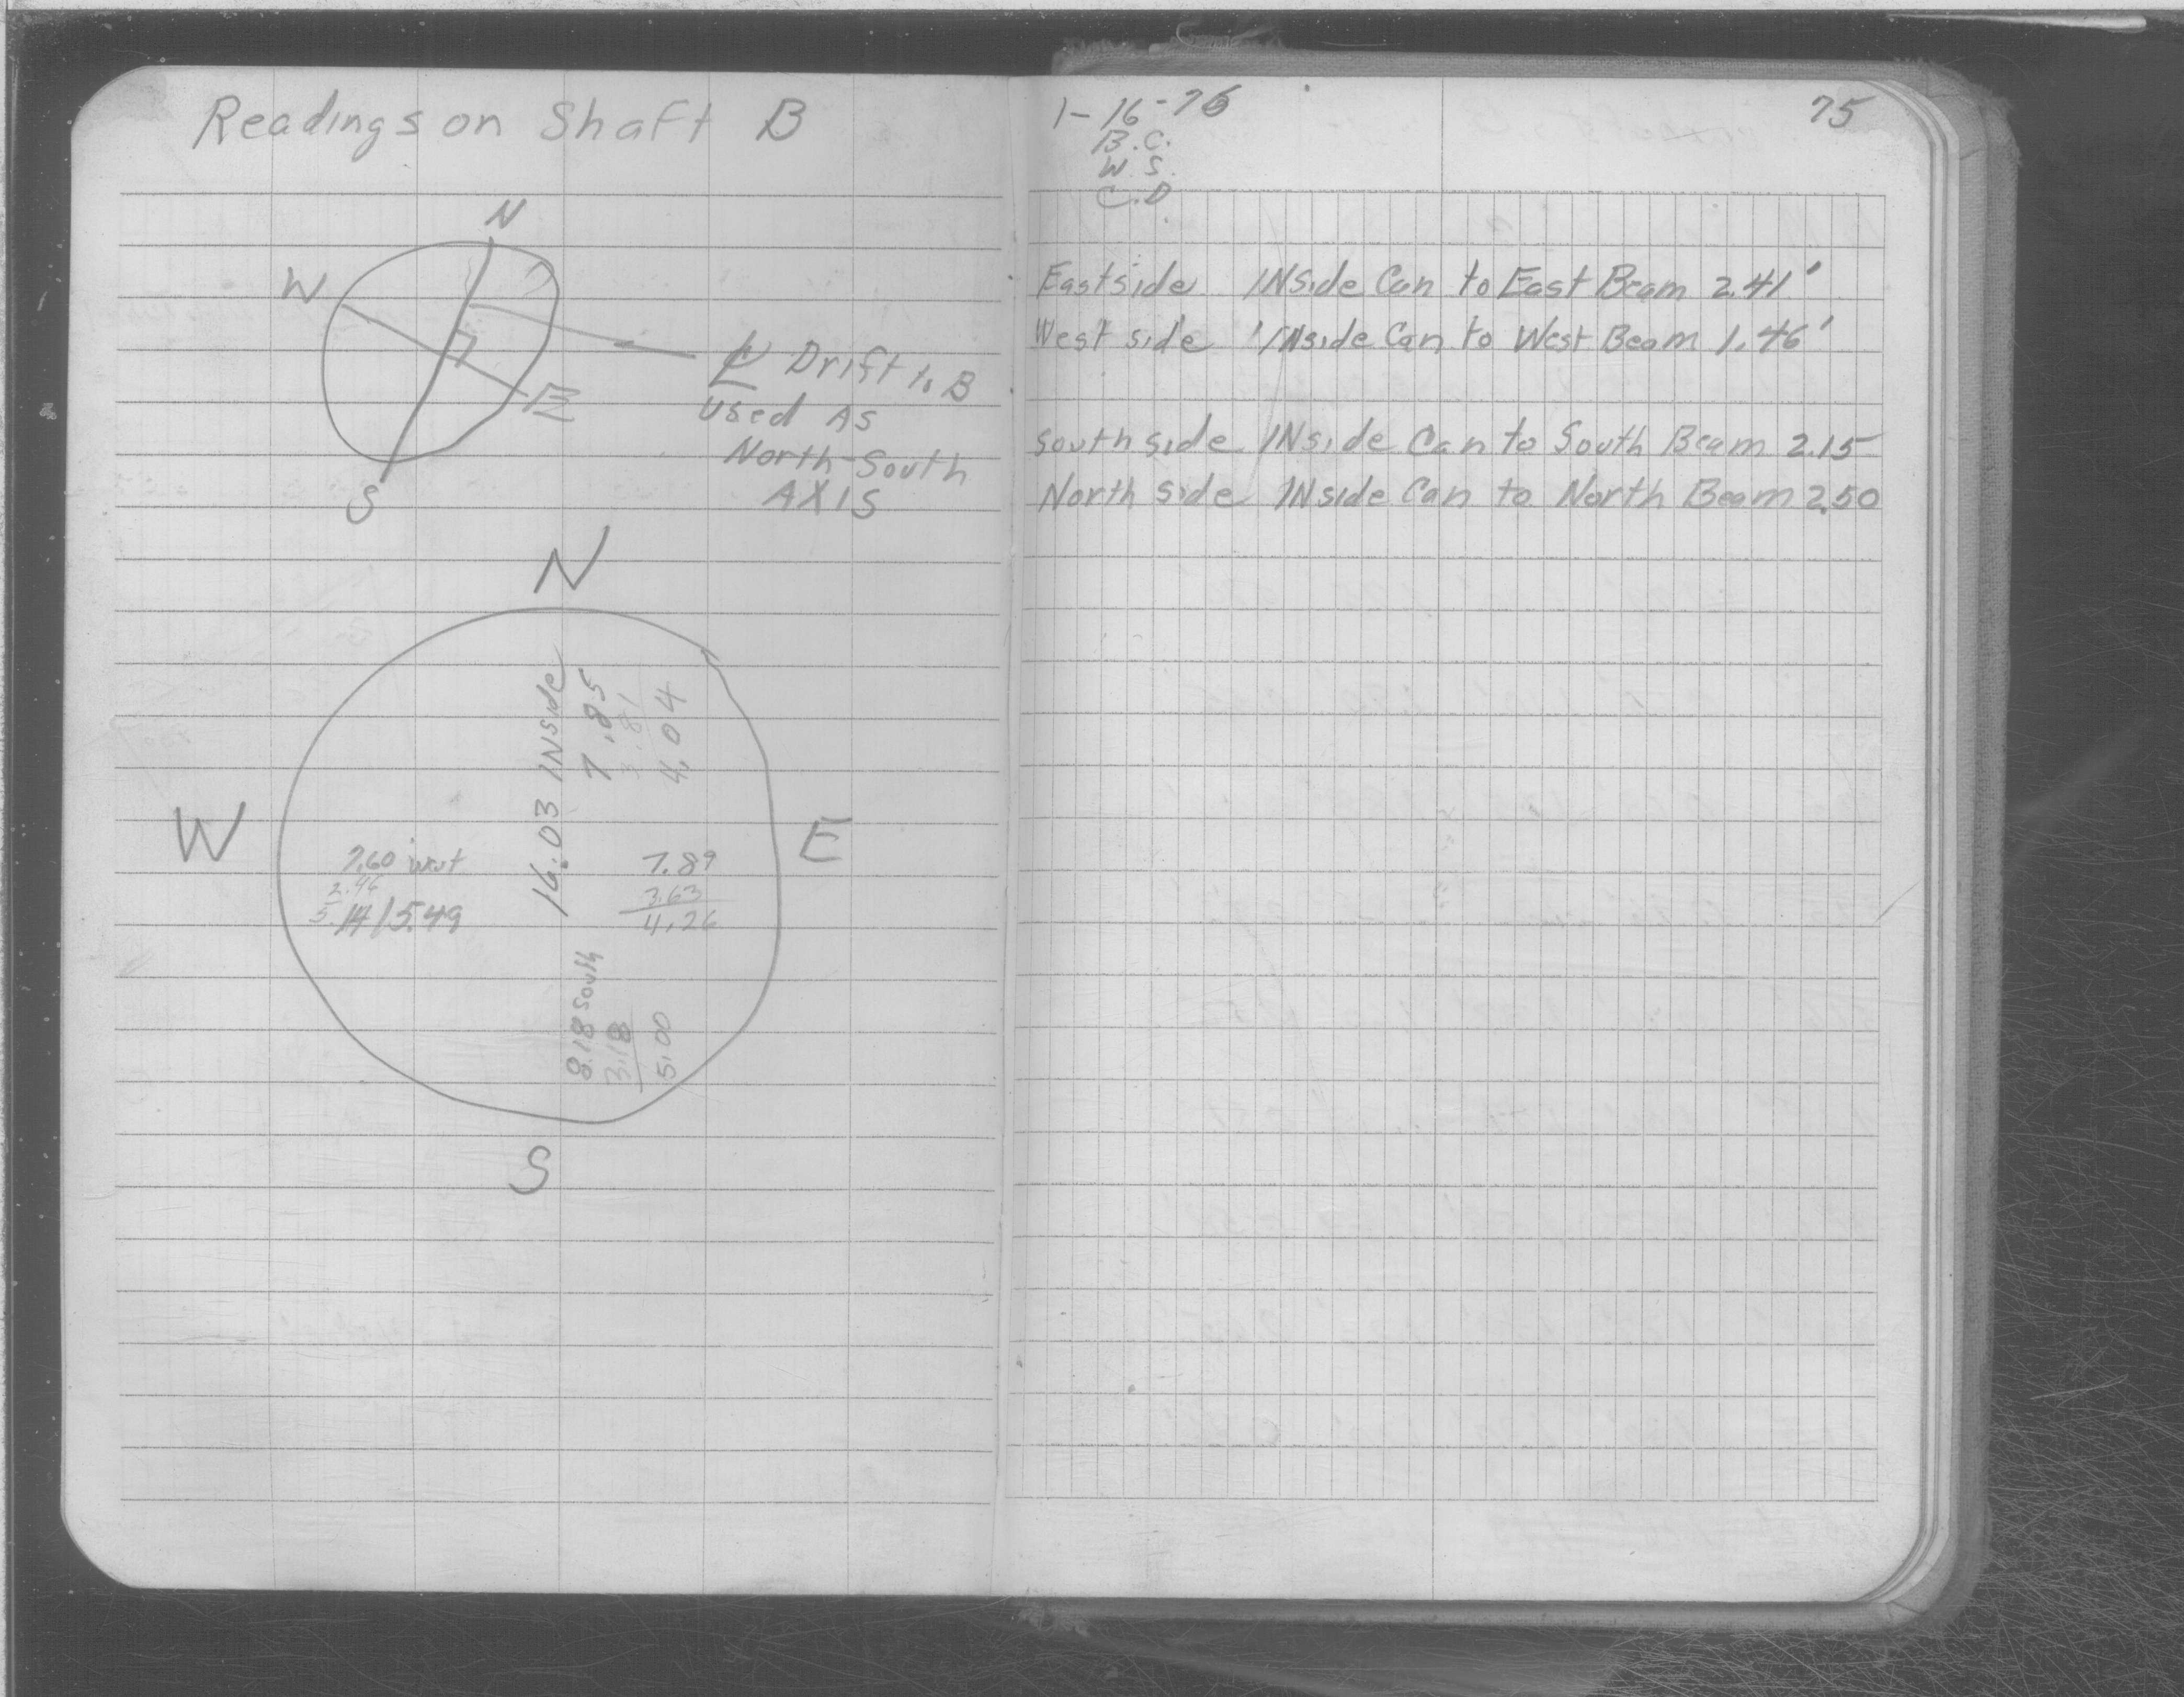 Readings on Shaft B
N
W
E
S
℄ Drift to B
Used As
North-South
AXIS
N
16.03 INside
7.85
3.81
4.04
W
E
7.60 west
2.46
5.14 / 5.49
7.89
3.63
4.26
8.18 South
3.18
5.00
S
1-16-76
75
B.C.
W.S.
C.D.
Eastside INside Can to East Beam 2.41'
West side INside Can to West Beam 1.46'
South side INside Can to South Beam 2.15
North side INside Can to North Beam 2.50